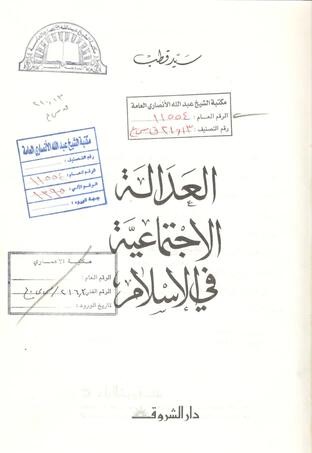 سيد قطب
٢١٦,١٣
مكتبة الشيخ عبد الله الأنصاري العامة
الرقم العام: ١١٥٥٤
رقم التصنيف:
مكتبة الشيخ عبد الله الأنصاري العامة
رقم التصنيف:
الرقم العام: ١١٥٥٤
الرقم الآلي: ١٣٩٥
جهة الورود:
العدالة
الاجتماعية
في الإسلام
مكتبة الانصاري
الرقم العام:
تاريخ الورود:
دار الشروق